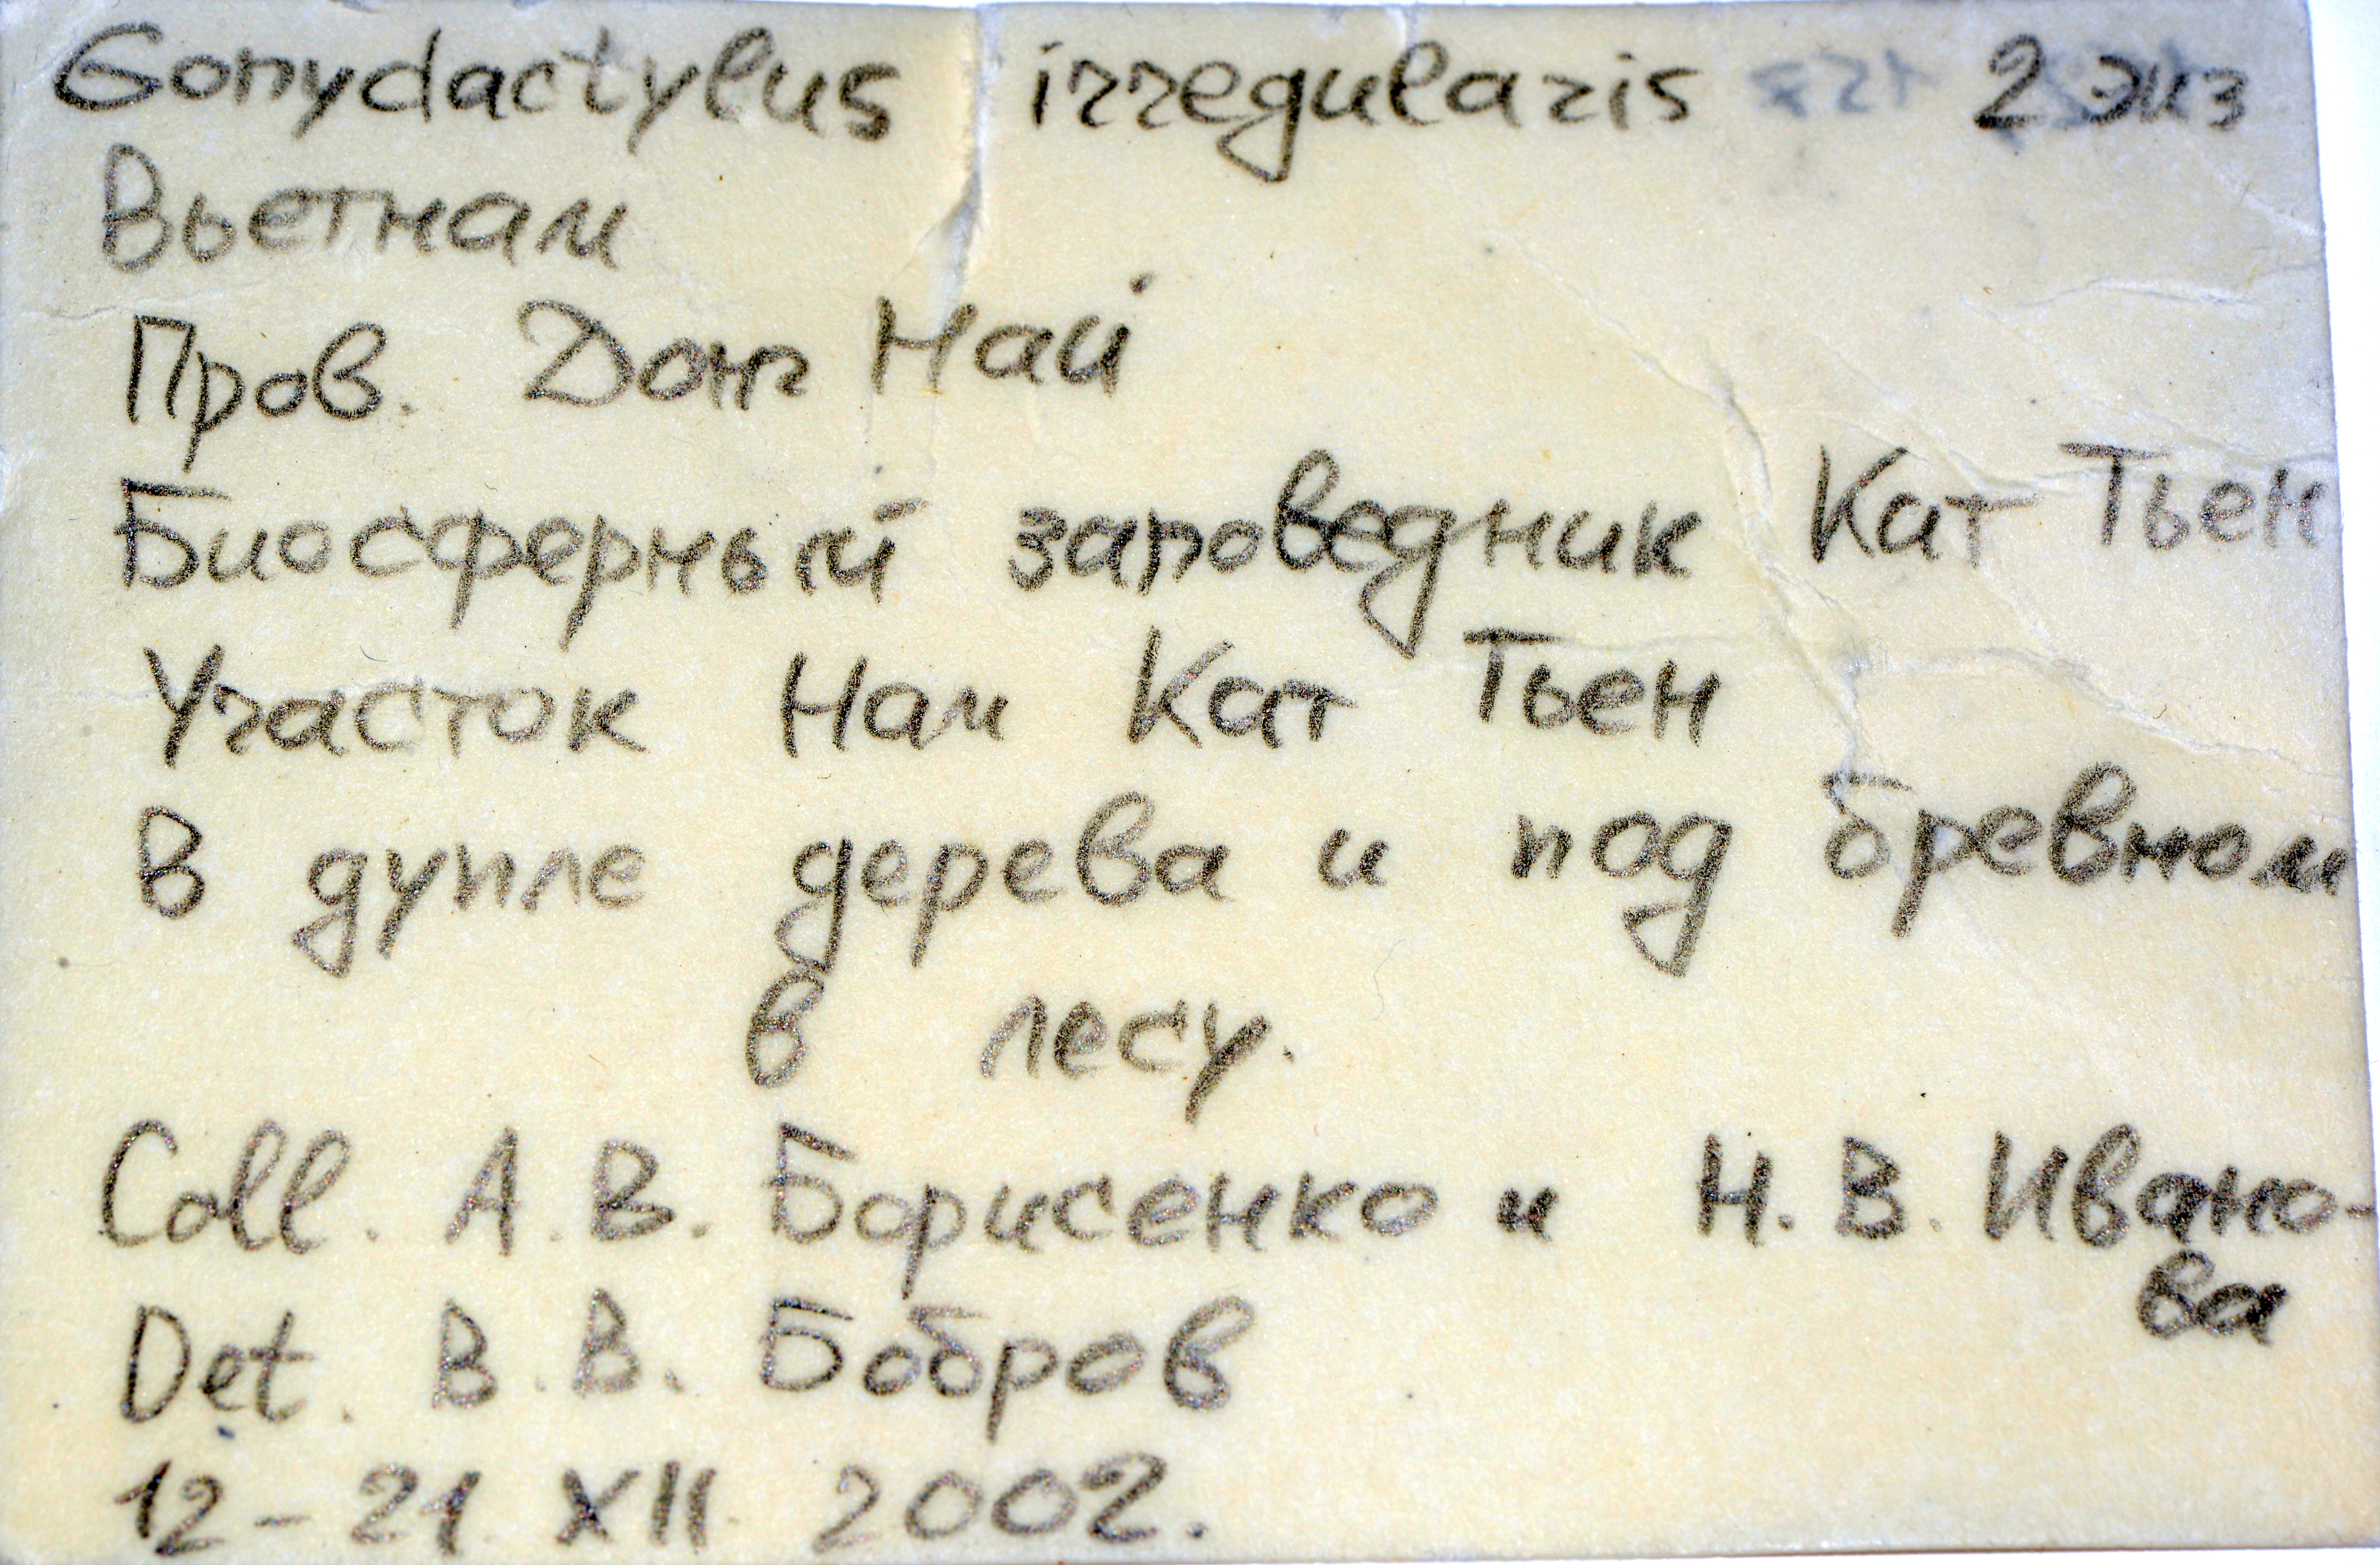 Gonydactylus irregularis 2 экз
Вьетнам
Пров. Донг Най
Биосферный заповедник Кат Тьен
Участок Нам Кат Тьен
В дупле дерева и под бревном
в лесу.
Coll. А.В. Борисенко и Н.В. Ивано-
ва
Det. В.В. Бобров
12-21 XII 2002.